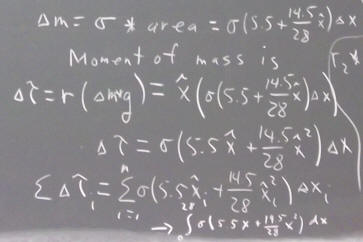 Δm = σ * area = σ(5.5 + 14.5/28 x̂) Δx
Moment of mass is
Δτ = r(Δmg) = x̂(σ(5.5 + 14.5/28 x̂) Δx)
Δτ = σ(5.5x̂ + 14.5/28 x̂²) Δx
ΣΔτᵢ = Σᵢ₌₁ⁿ σ(5.5x̂ᵢ + 14.5/28 x̂ᵢ²) Δxᵢ
→ ∫₀²⁸ σ(5.5x + 14.5/28 x²) dx